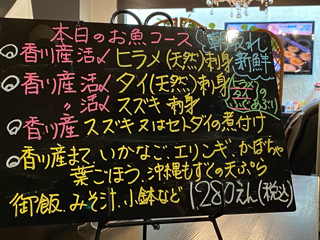 本日のお魚コース(朝取れ新鮮
香川産 活〆 ヒラメ(天然)刺身
香川産 活〆 タイ(天然)刺身
〃 活〆 スズキ 刺身
香川産 スズキ又はセトダイの煮付け
香川産まて、いかなご、エリンギ、かぼちゃ
葉ごぼう、沖縄もずくの天ぷら
御飯、みそ汁、小鉢など 1280えん(税込)